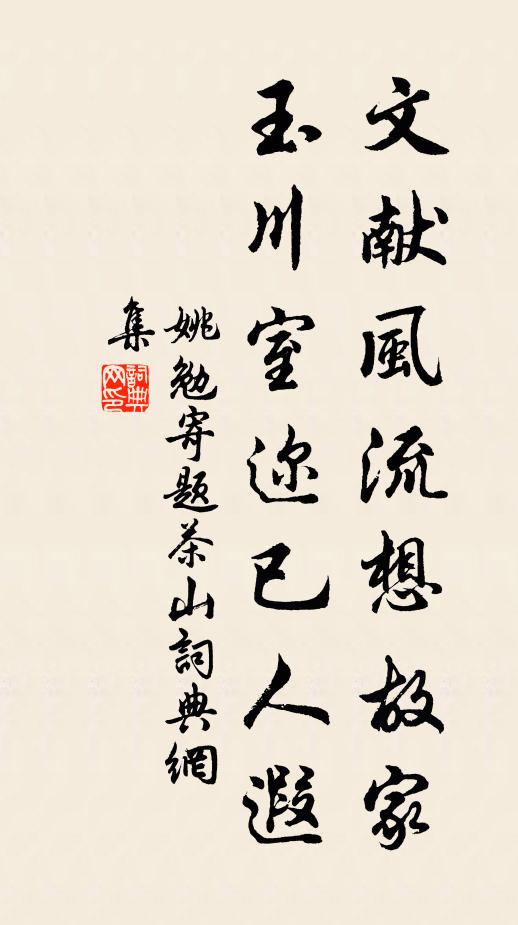 文献風流想故家
玉川室迩已人遐
姚勉寄題茶山詞典網
集
詞典
网印